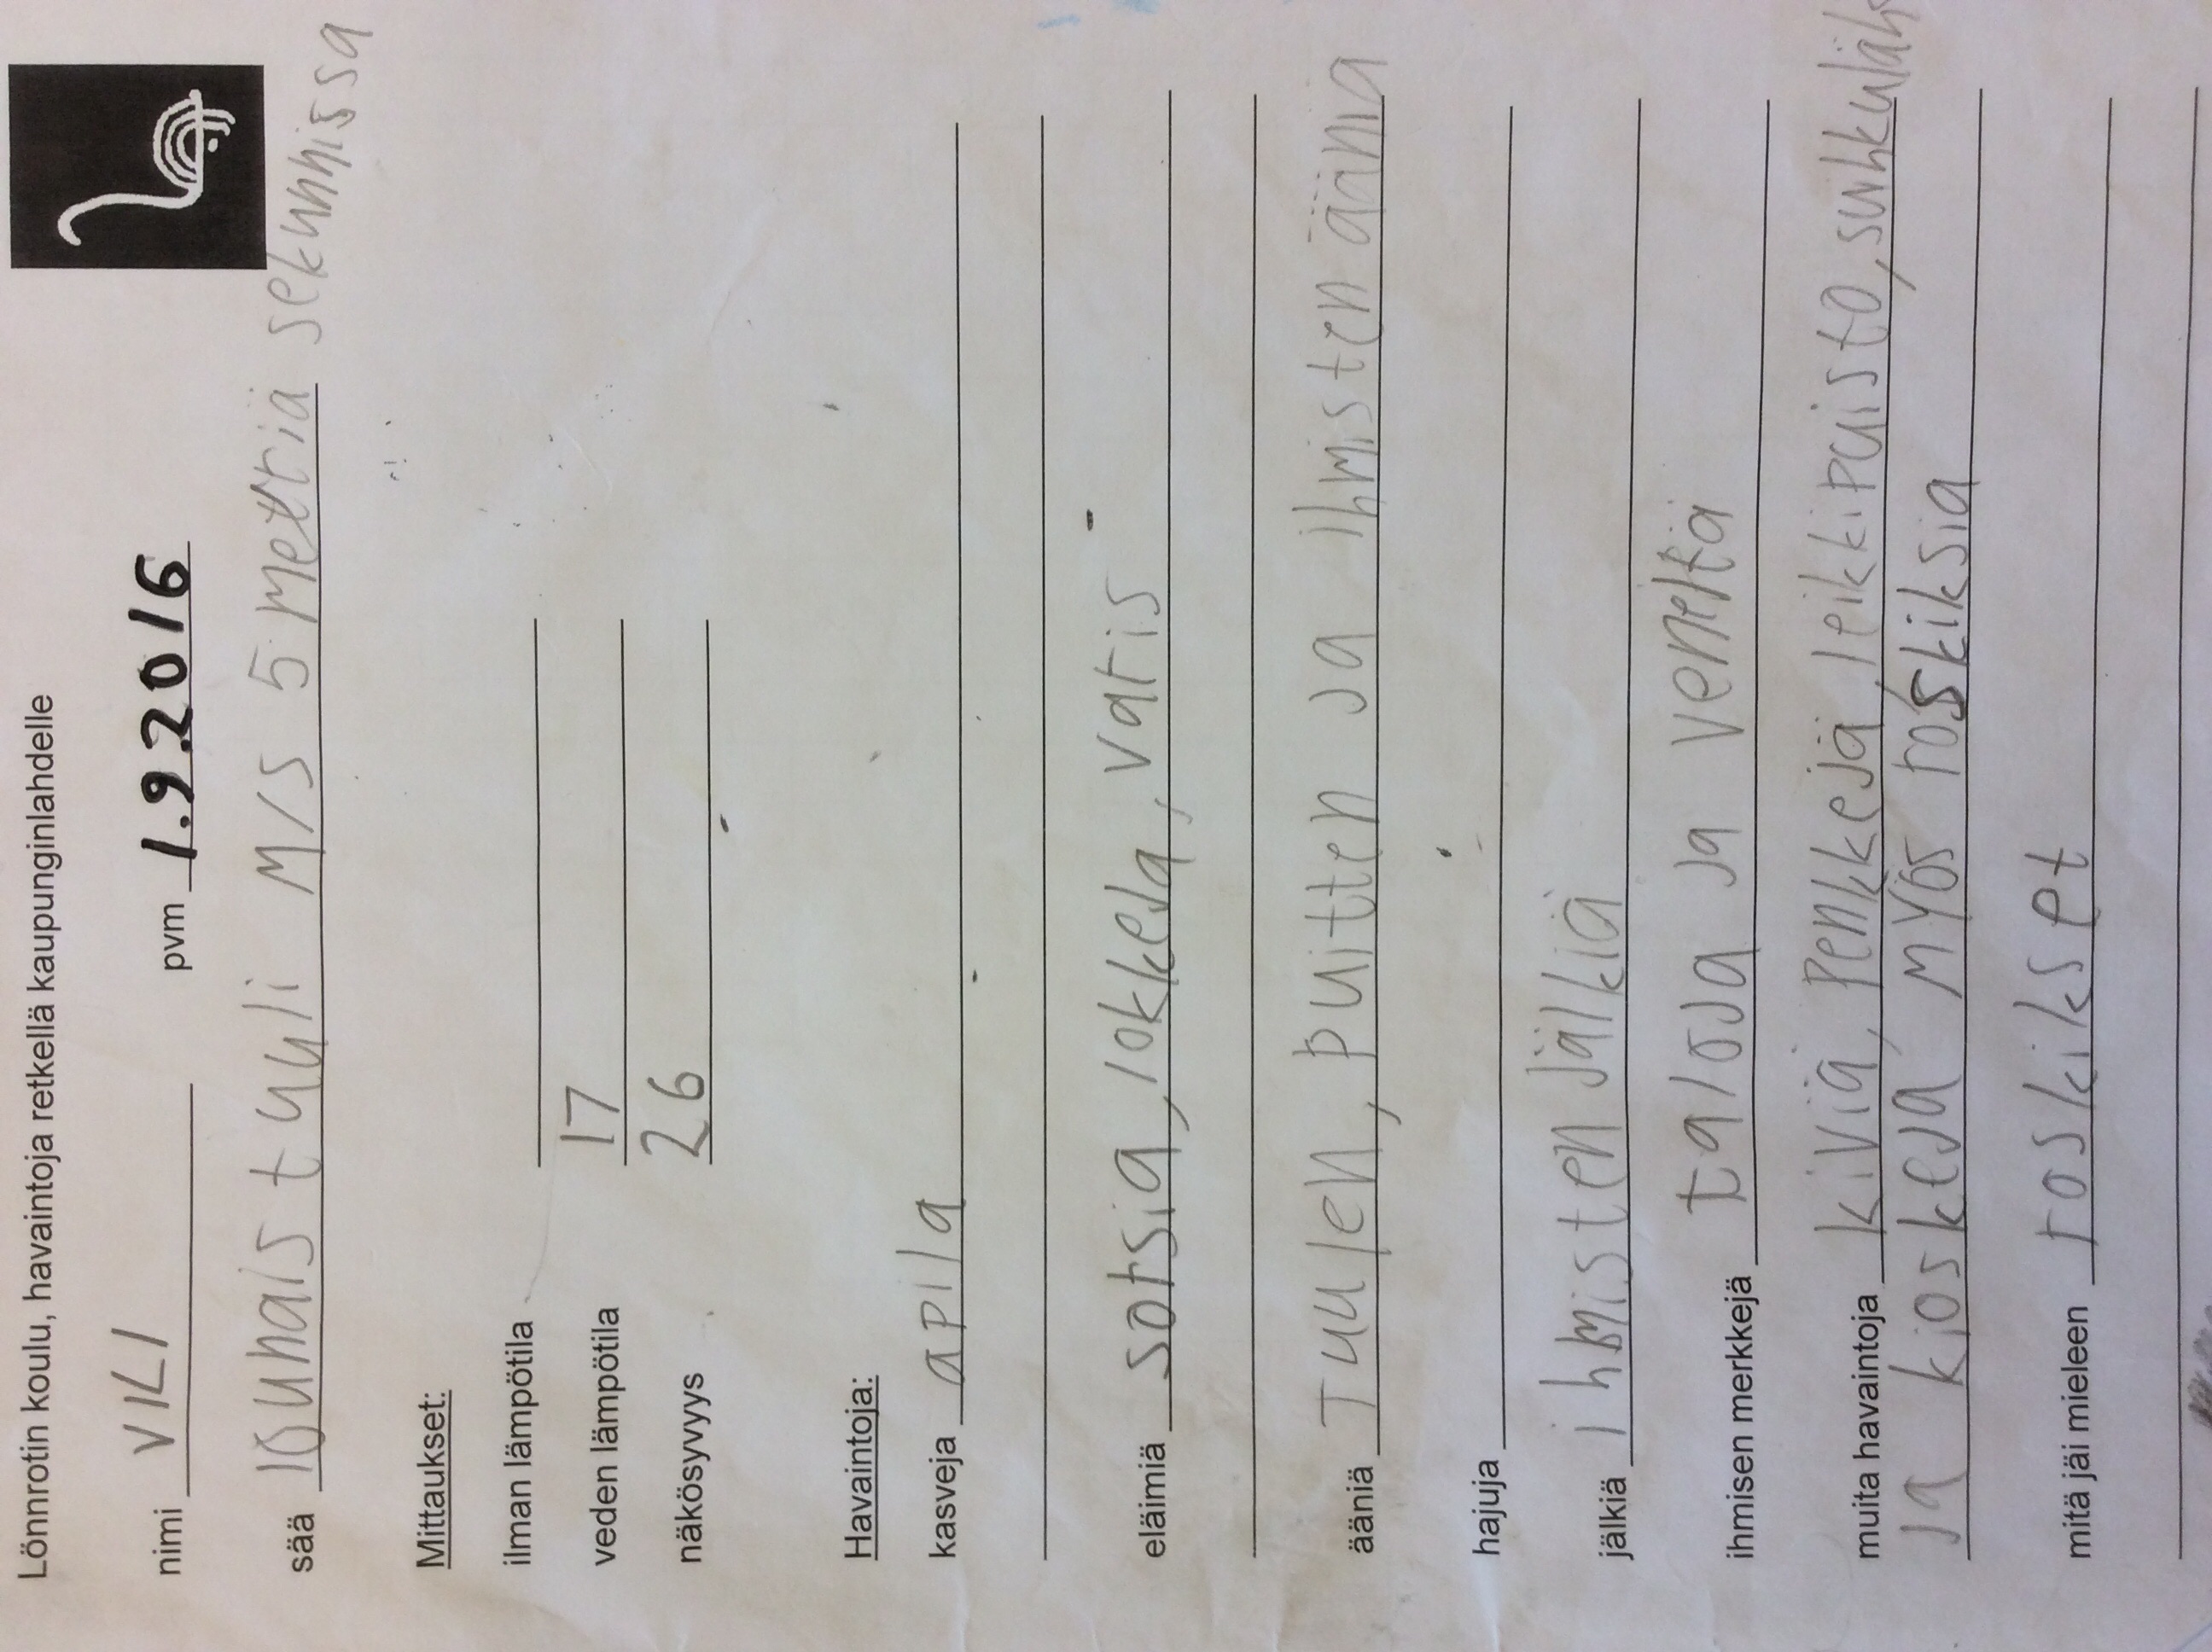 Lönnrotin koulu, havaintoja retkellä kaupunginlahdelle
nimi VILI pvm 1.9.2016
sää lounais tuuli M/S 5 metriä sekunnissa
Mittaukset:
ilman lämpötila
veden lämpötila 17
näkösyvyys 26
Havaintoja:
kasveja apila
eläimiä sorsia, lokkeja, varis
ääniä Tuulen, puitten ja ihmisten ääniä
hajuja
jälkiä ihmisten jälkiä
ihmisen merkkejä taloja ja veneitä
muita havaintoja kiviä, Penkkejä, leikkipuisto,
ja kioskeja myös roskiksia
mitä jäi mieleen roskikset